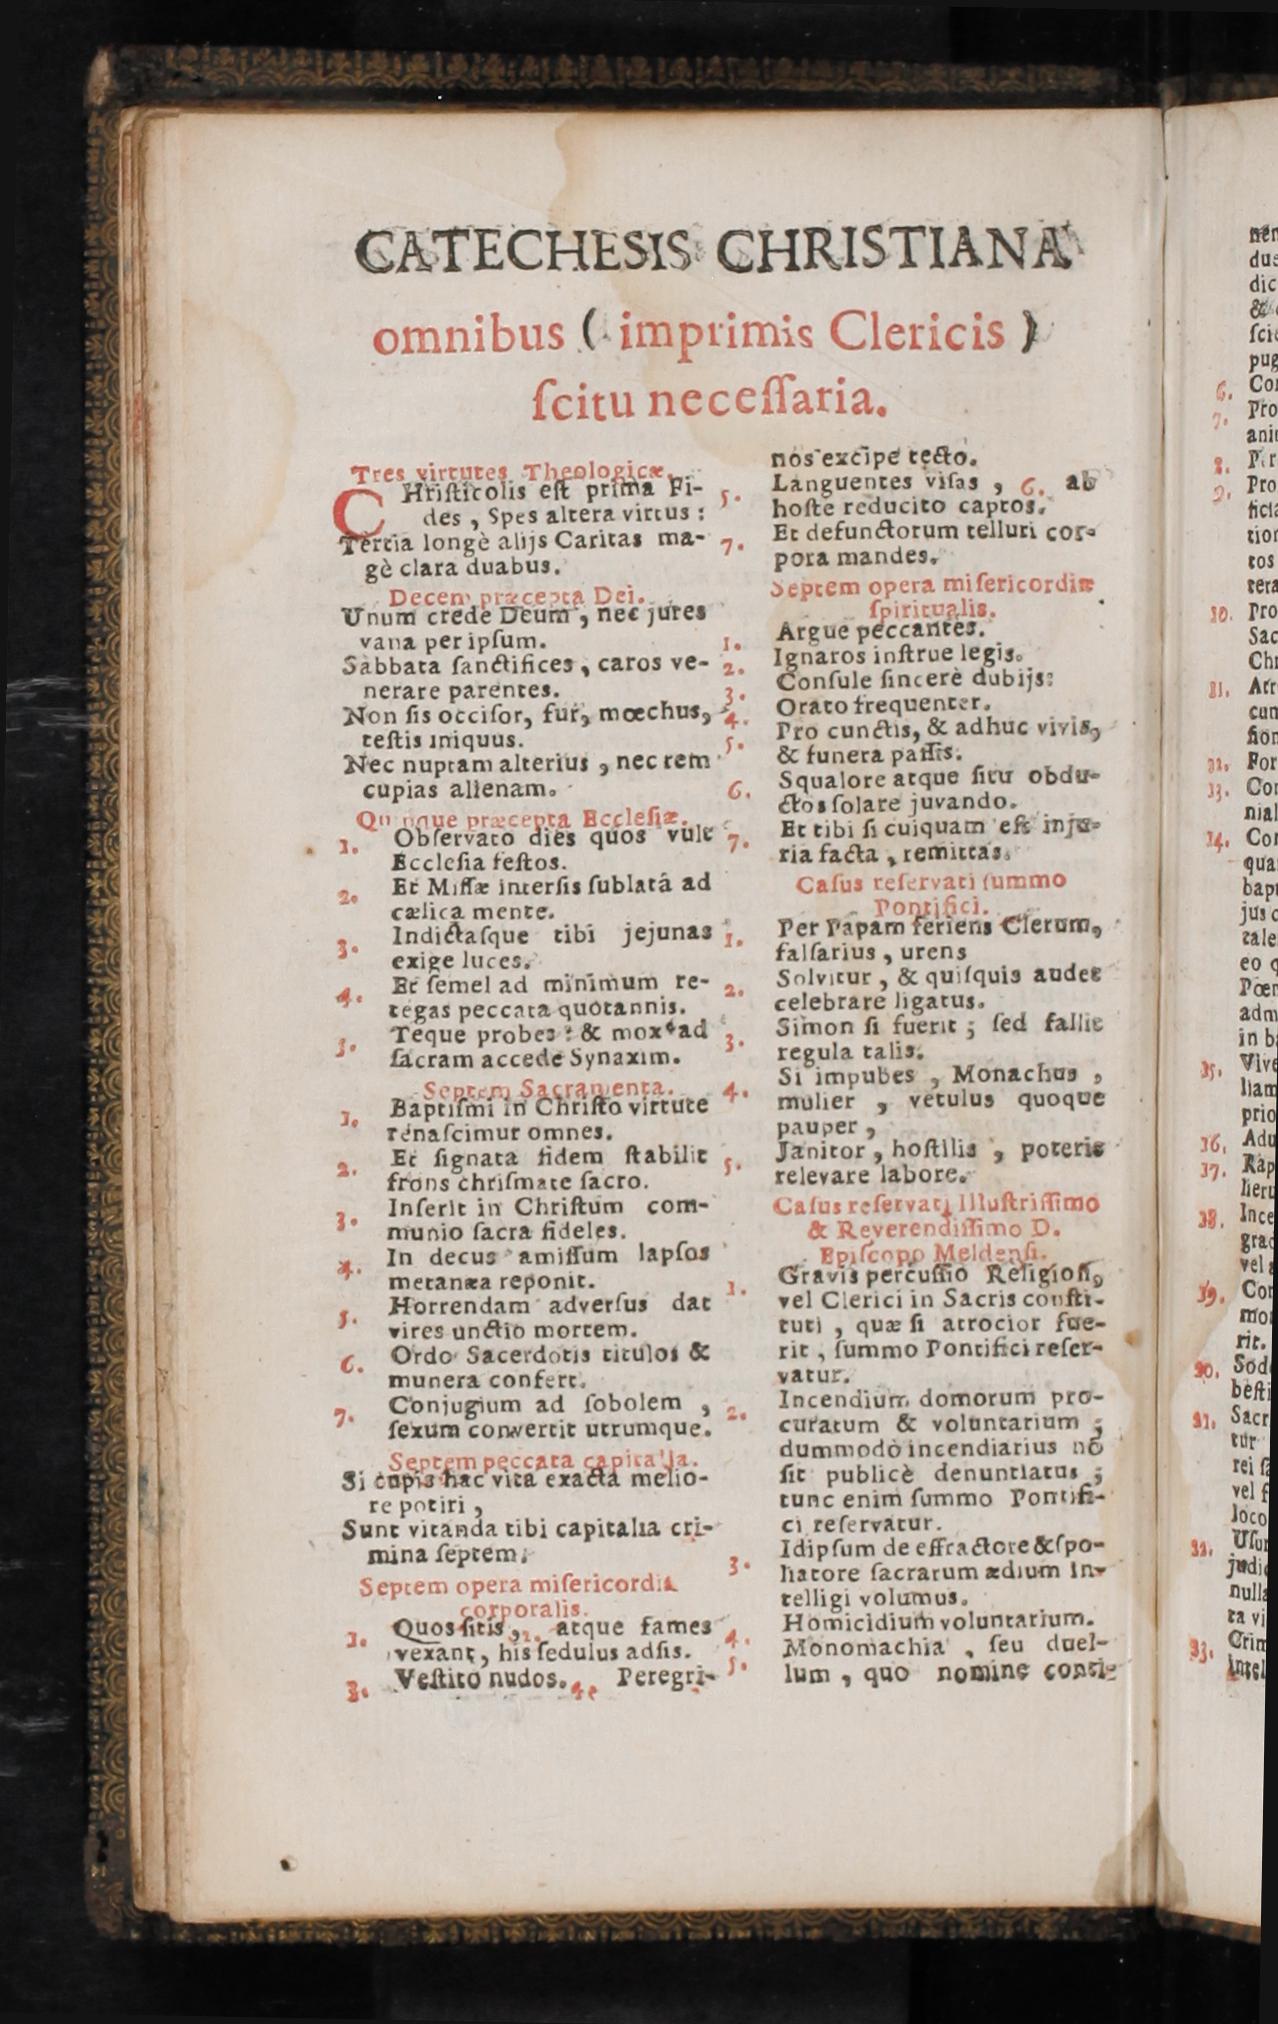 CATECHESIS CHRISTIANA
omnibus ( imprimis Clericis )
ſcitu neceſſaria.
Tres virtutes Theologicæ.
CHriſticolis eſt prima Fi-
des , Spes altera virtus :
Tertia longè alijs Caritas ma-
gè clara duabus.
Decem præcepta Dei.
Unum crede Deum , nec jures
vana per ipſum.
Sabbata ſanctifices , caros ve-
nerare parentes.
Non ſis occiſor, fur, mœchus,
teſtis iniquus.
Nec nuptam alterius , nec rem
cupias alienam.
Quinque præcepta Eccleſiæ.
1. Obſervato dies quos vult
Eccleſia feſtos.
2. Et Miſſæ interſis ſublatâ ad
cælica mente.
3. Indictaſque tibi jejunas
exige luces.
4. Et ſemel ad minimum re-
tegas peccata quotannis.
5. Teque probes : & mox ad
ſacram accede Synaxim.
Septem Sacramenta.
1. Baptiſmi in Chriſto virtute
renaſcimur omnes.
2. Et ſignata fidem ſtabilit
frons chriſmate ſacro.
3. Inſerit in Chriſtum com-
munio ſacra fideles.
4. In decus amiſſum lapſos
metanæa reponit.
5. Horrendam adverſus dat
vires unctio mortem.
6. Ordo Sacerdotis titulos &
munera confert.
7. Conjugium ad ſobolem ,
ſexum convertit utrumque.
Septem peccata capitalia.
Si cupis hac vita exacta melio-
re potiri ,
Sunt vitanda tibi capitalia cri-
mina ſeptem.
Septem opera miſericordiæ
corporalis.
1. Quos ſitis , 2. atque fames
vexant, his ſedulus adſis.
3. Veſtito nudos. 4. Peregri-
nos excipe tecto.
5. Languentes viſas , 6. ab
hoſte reducito captos.
7. Et defunctorum telluri cor-
pora mandes.
Septem opera miſericordiæ
ſpiritualis.
1. Argue peccantes.
2. Ignaros inſtrue legis.
3. Conſule ſincerè dubijs:
4. Orato frequenter.
5. Pro cunctis, & adhuc vivis,
& funera paſſis.
6. Squalore atque ſitu obdu-
ctos ſolare juvando.
7. Et tibi ſi cuiquam eſt inju-
ria facta , remittas.
Caſus reſervati ſummo
Pontifici.
1. Per Papam feriens Clerum,
falſarius , urens
2. Solvitur , & quiſquis audet
celebrare ligatus.
3. Simon ſi fuerit ; ſed fallit
regula talis.
4. Si impubes , Monachus ,
mulier , vetulus quoque
pauper ,
5. Janitor , hoſtilis , poteris
relevare labore.
Caſus reſervati Illuſtriſſimo
& Reverendiſſimo D.
Epiſcopo Meldenſi.
1. Gravis percuſſio Religioſi,
vel Clerici in Sacris conſti-
tuti , quæ ſi atrocior fue-
rit , ſummo Pontifici reſer-
vatur.
2. Incendium domorum pro-
curatum & voluntarium ;
dummodò incendiarius nõ
ſit publicè denuntiatus ;
tunc enim ſummo Pontifi-
ci reſervatur.
3. Idipſum de effractore & ſpo-
liatore ſacrarum ædium in-
telligi volumus.
4. Homicidium voluntarium.
5. Monomachia , ſeu duel-
lum , quo nomine conti-